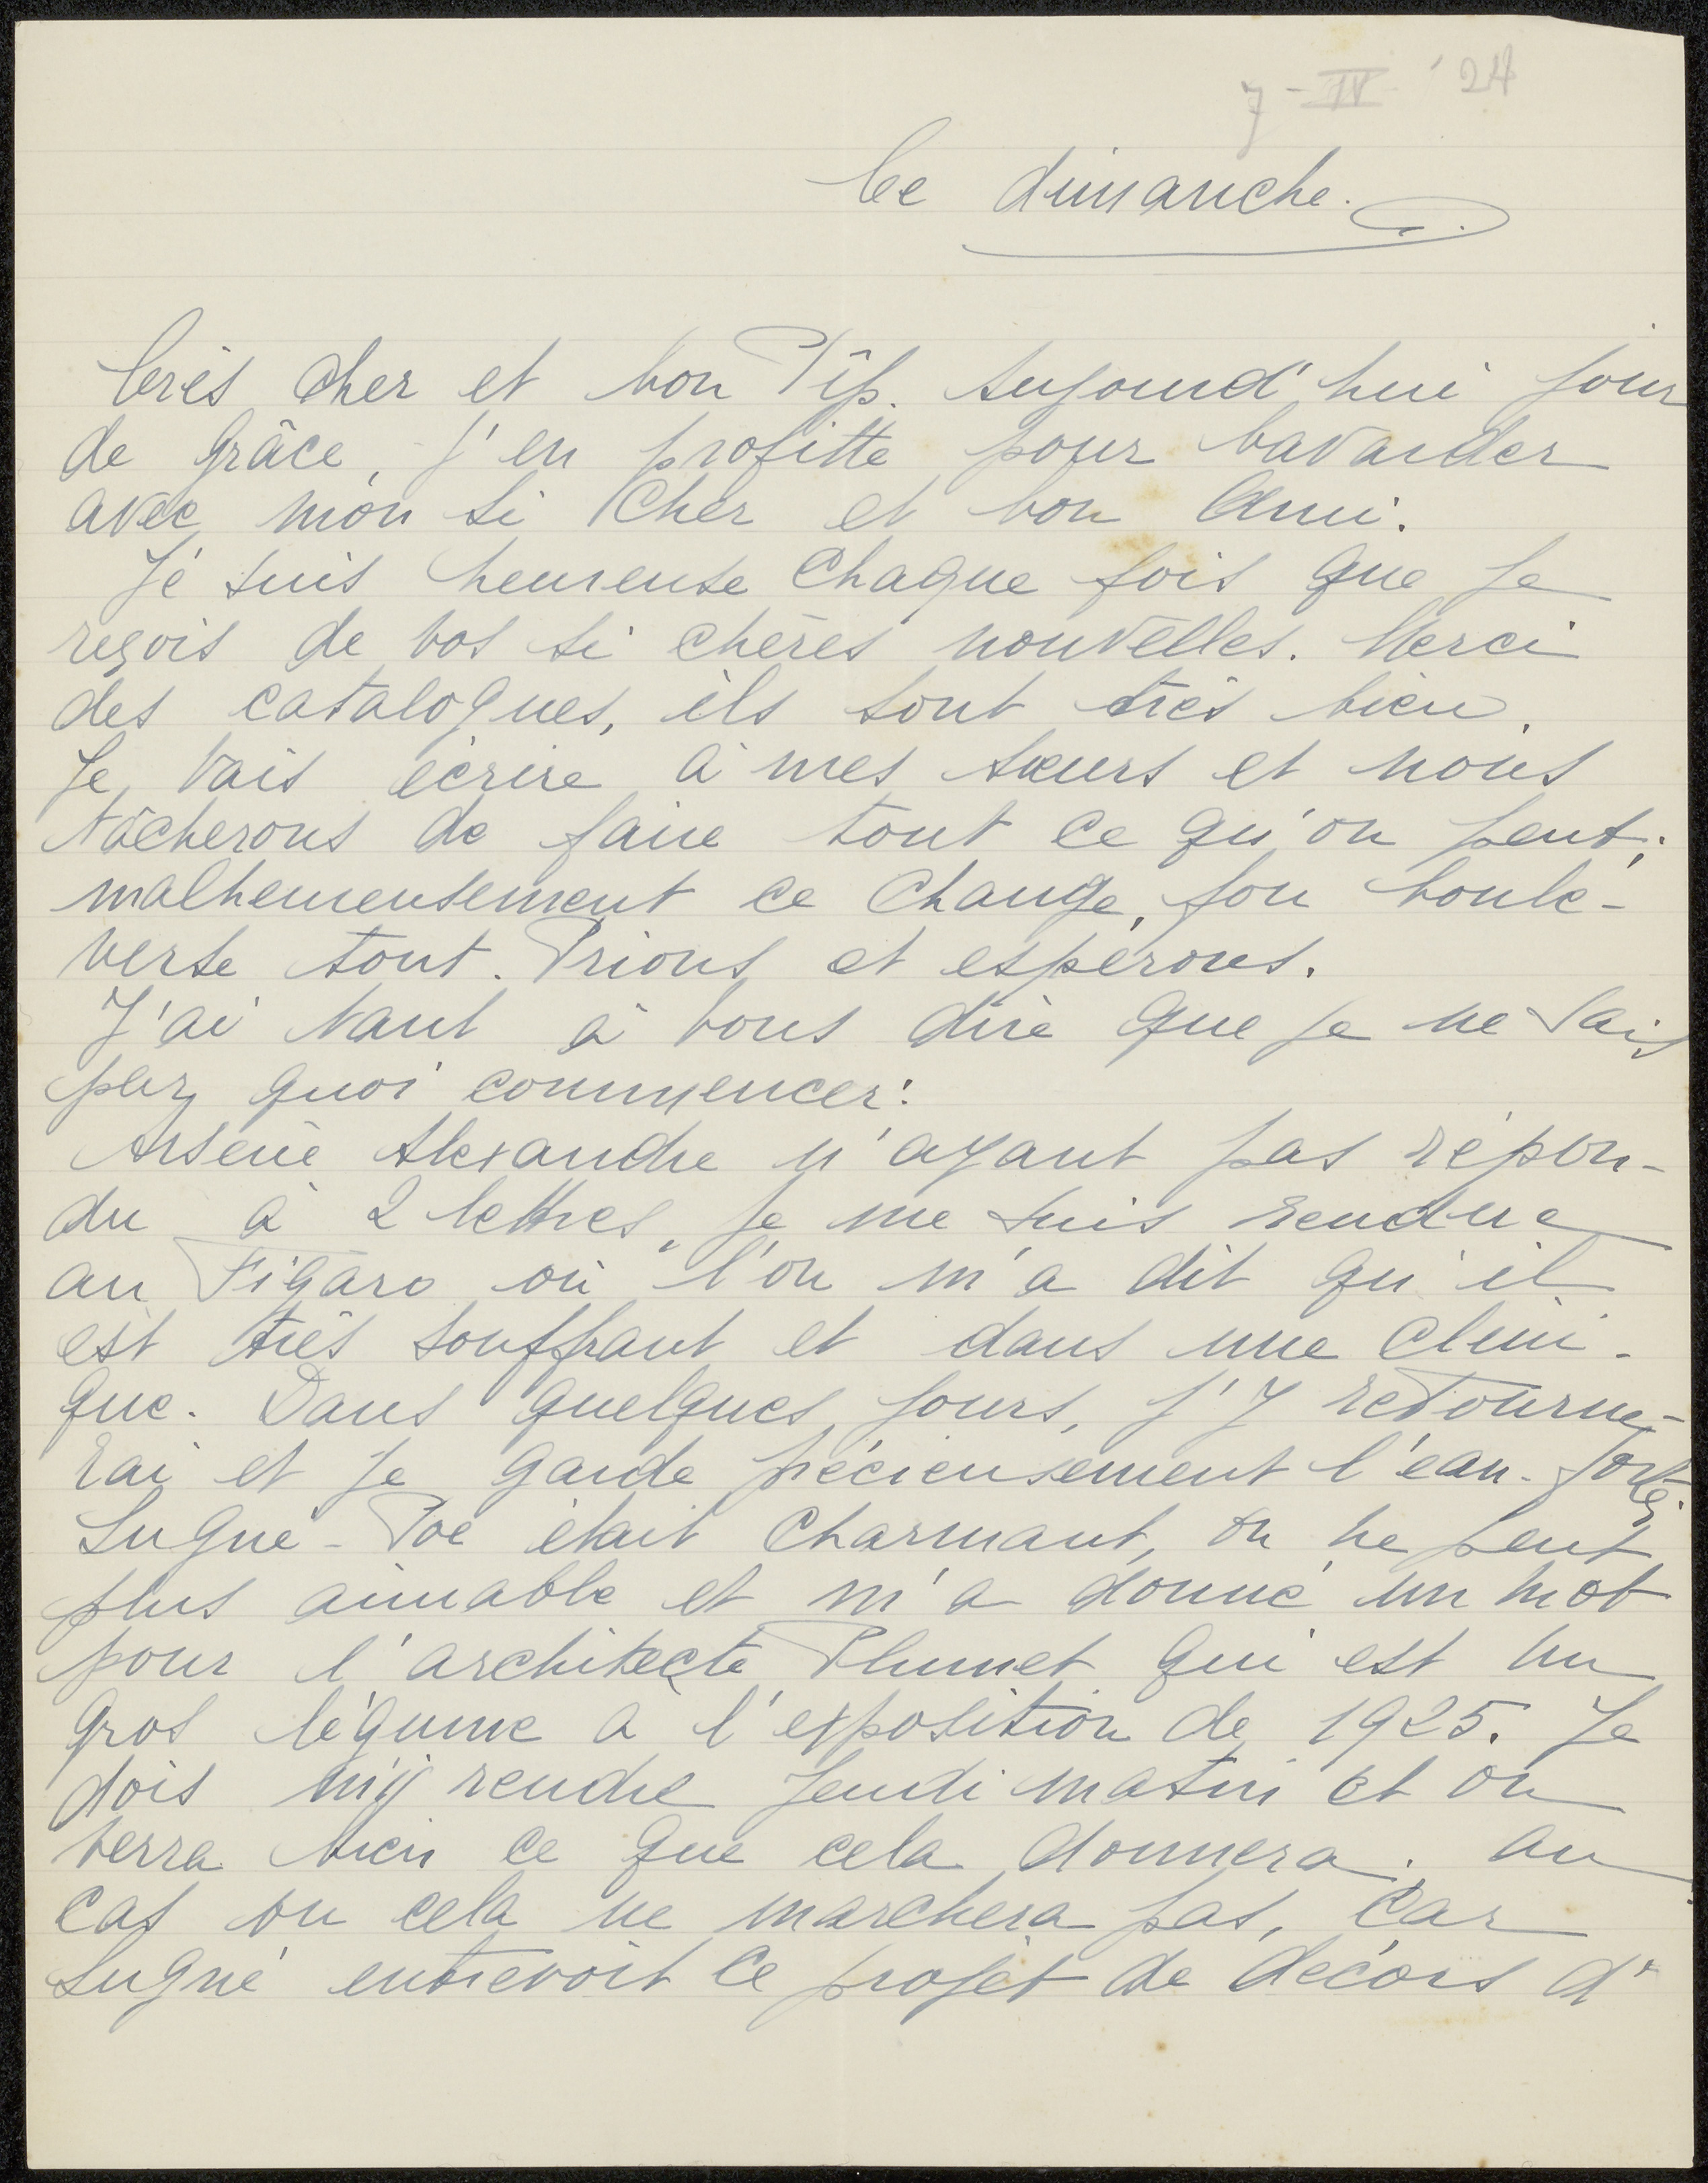 7-IV '24
Ce dimanche.
Très cher et bon Pip. Aujourd'hui jour
de grâce, j'en profitte pour bavarder
avec mon si cher et bon Ami.
Je suis heureuse chaque fois que je
reçois de vos si chères nouvelles. Merci
des catalogues, ils sont très bien.
Je vais écrire à mes sœurs et nous
tâcherons de faire tout ce qu'on peut;
malheureusement ce change fou boule-
verse tout. Prions et espérons.
J'ai tant à vous dire que je ne sais
par quoi commencer:
Arsène Alexandre n'ayant pas répon-
du à 2 lettres, je me suis rendue
au Figaro où l'on m'a dit qu'il
est très souffrant et dans une clini-
que. Dans quelques jours, j'y retourne-
rai et je garde précieusement l'eau-forte.
Lugné-Poe était charmant, on ne peut
plus aimable et m'a donné un mot
pour l'architecte Plumet qui est un
gros légume à l'exposition de 1925. Je
dois m'y rendre jeudi matin et on
verra bien ce que cela donnera. au
cas ou cela ne marchera pas, car
Lugné entrevoit le projet de décors d'